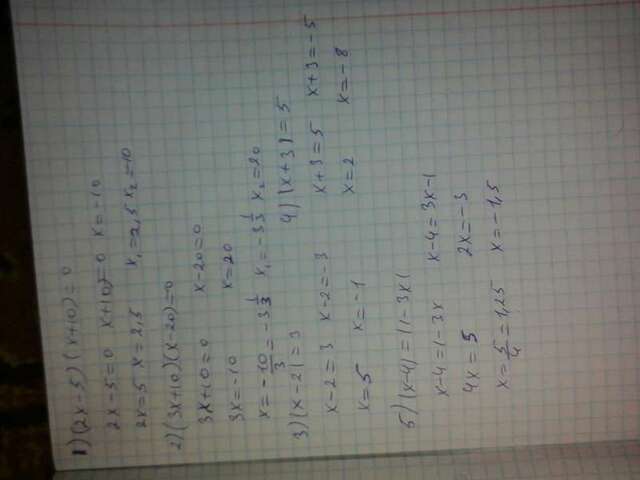 1) (2x-5)(x+10)=0
2x-5=0 x+10=0 x=-10
2x=5 x=2,5 x₁=2,5 x₂=-10
2) (3x+10)(x-20)=0
3x+10=0 x-20=0
3x=-10 x=20
x=-10/3=-3 1/3 x₁=-3 1/3 x₂=20
3) |x-2|=3
x-2=3 x-2=-3
x=5 x=-1
4) |x+3|=5
x+3=5 x+3=-5
x=2 x=-8
5) |x-4|=|1-3x|
x-4=1-3x x-4=3x-1
4x=5 2x=-3
x=5/4=1,25 x=-1,5